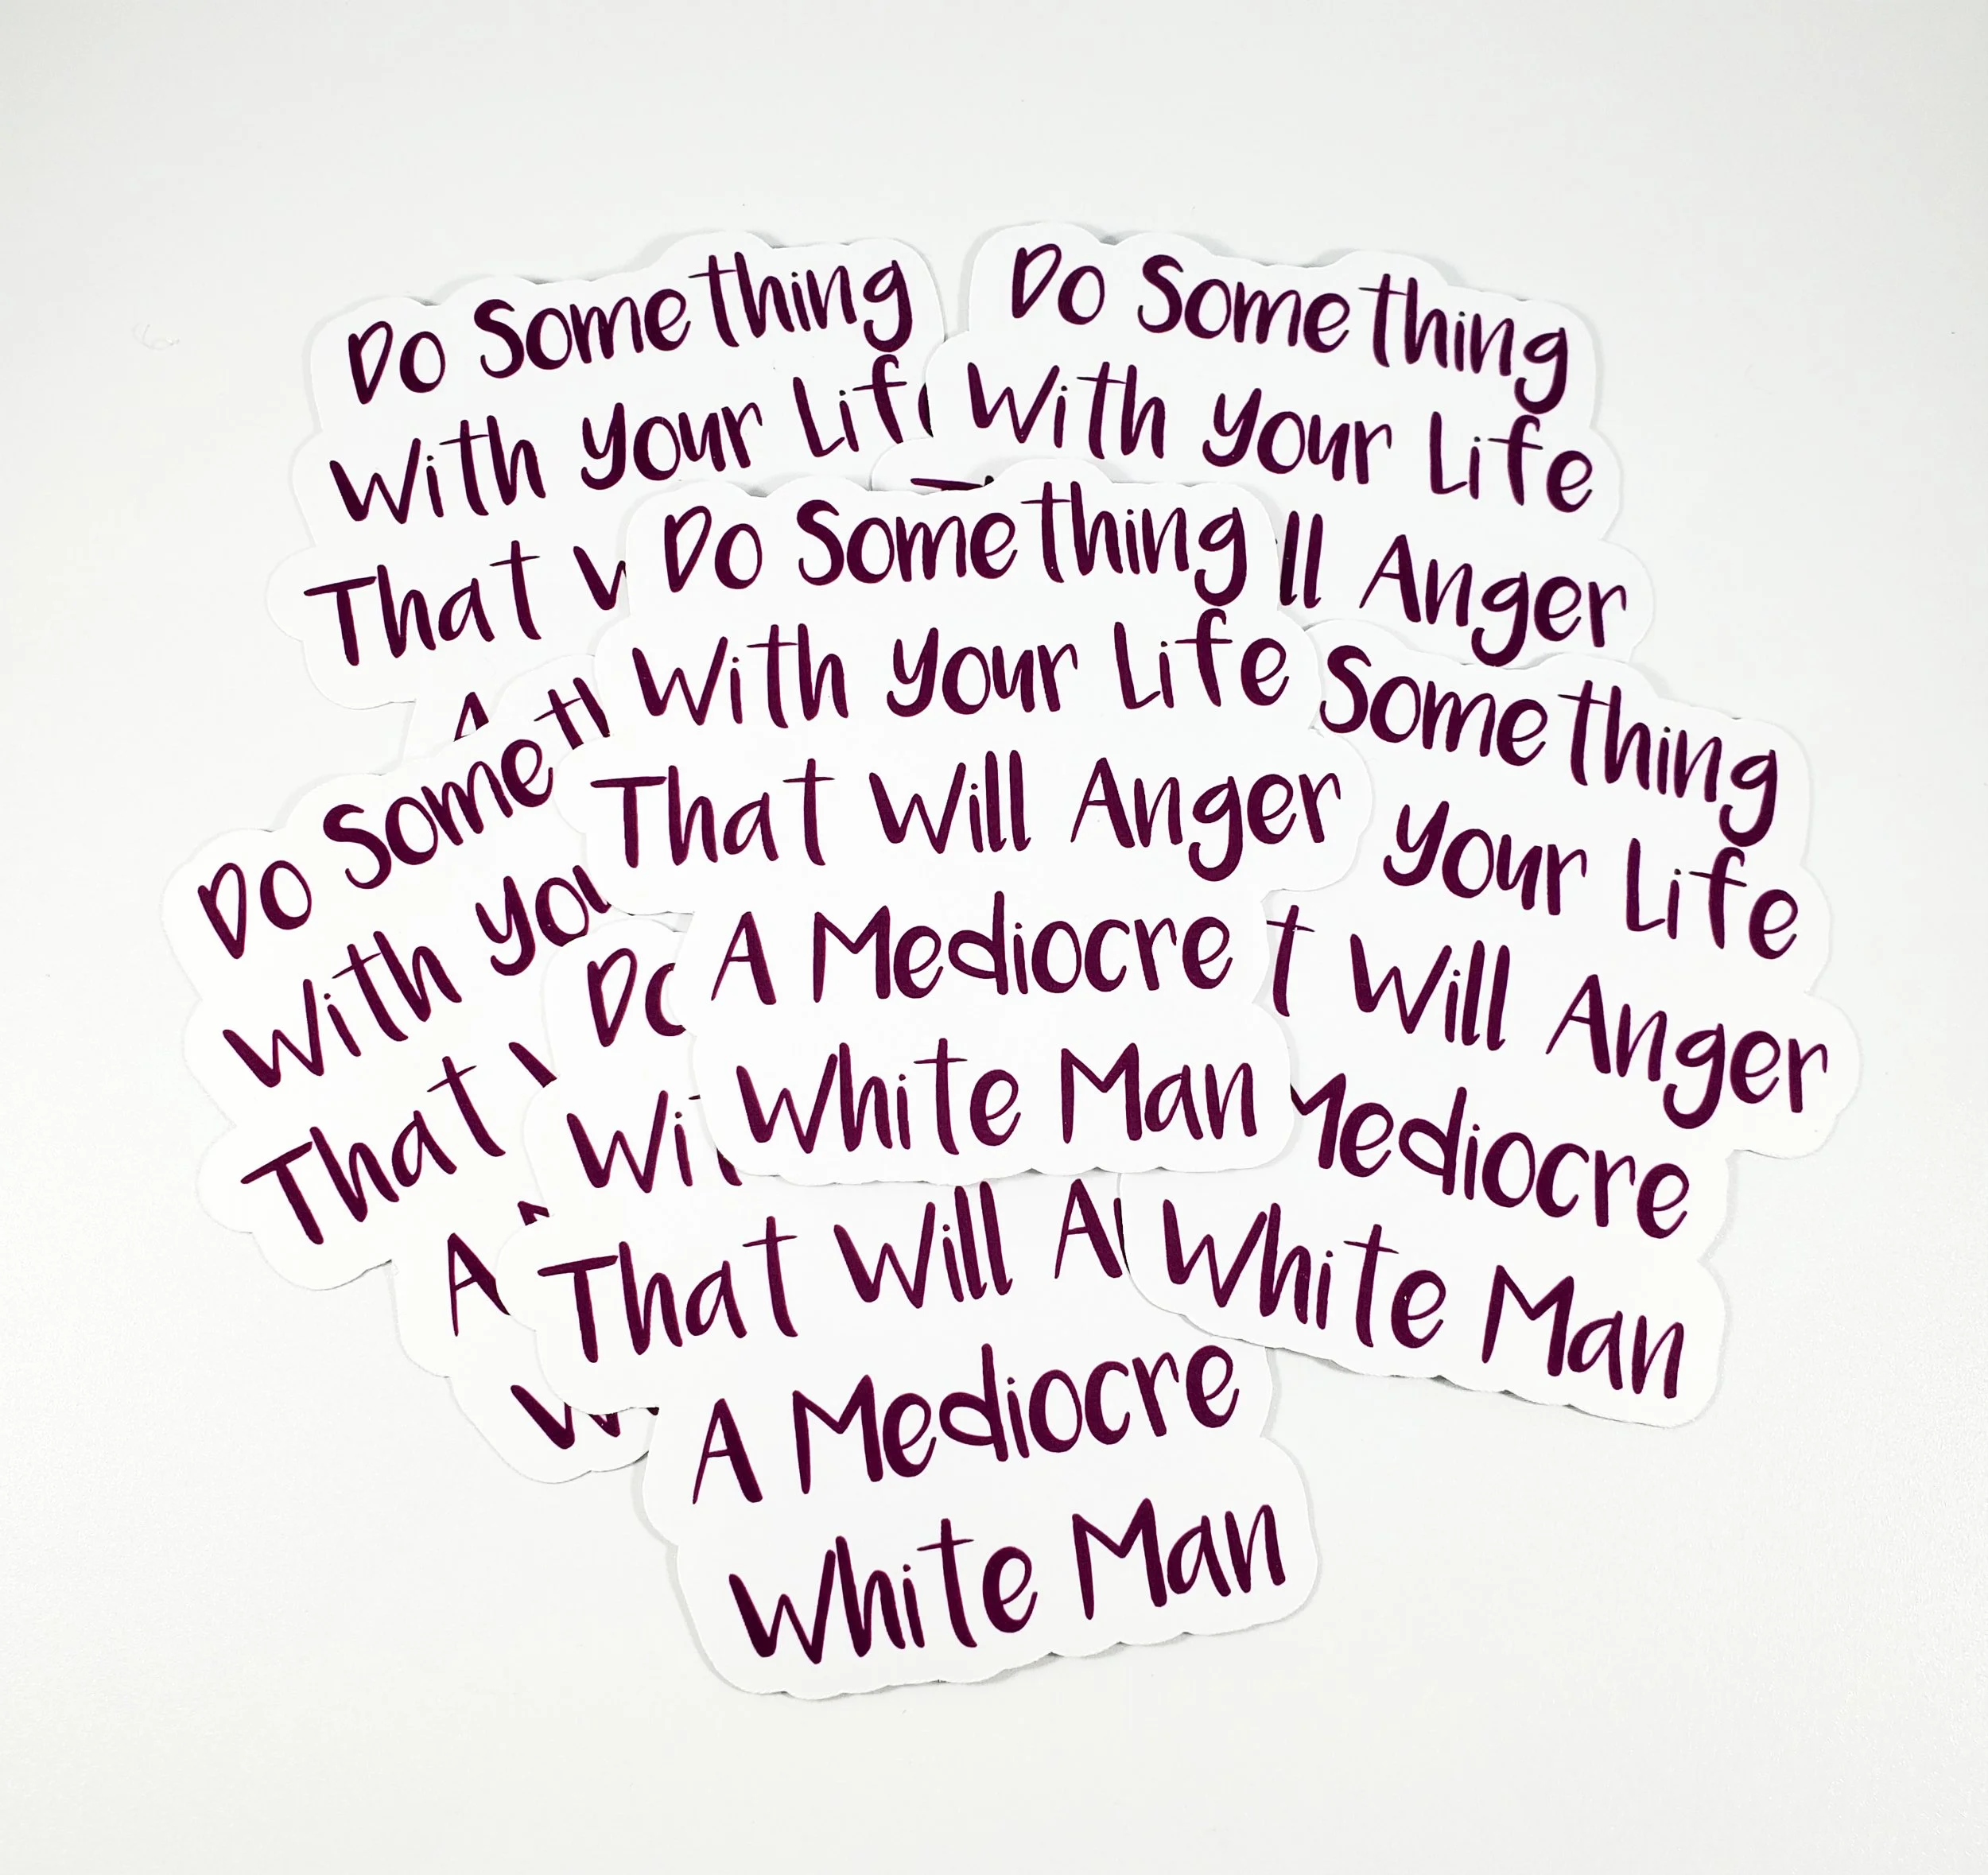 Do Something
With your
That
Do Something
With your Life
Anger
Do Something
With your Life
That Will Anger
A Mediocre
White Man
Something
your Life
Will Anger
Mediocre
White Man
Do
With
That
A
Do
That Will
A Mediocre
White Man